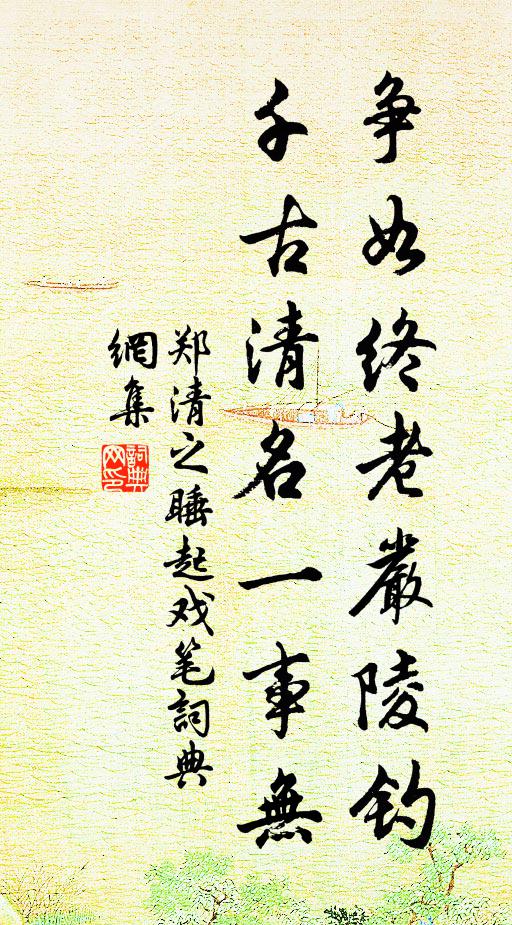 争如终老嚴陵钓
千古清名一事無
郑清之睡起戏笔詞典
網集
詞典
网印